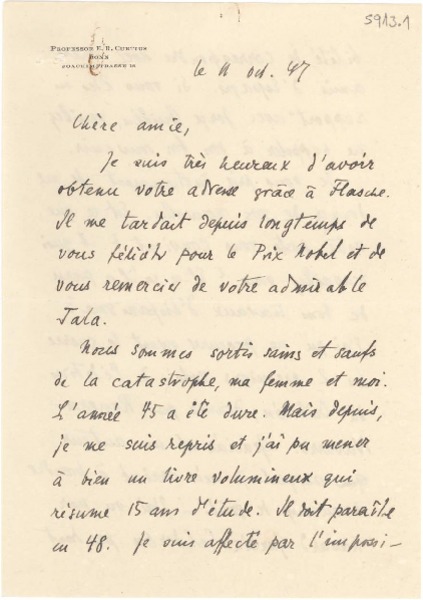 5913.1
PROFESSOR E. R. CURTIUS
BONN
JOACHIMSTRASSE 18
le 11 oct. 47
Chère amie,
Je suis très heureux d'avoir
obtenu votre adresse grâce à Flasche.
Il me tardait depuis longtemps de
vous féliciter pour le Prix Nobel et de
vous remercier de votre admirable
Tala.
Nous sommes sortis sains et saufs
de la catastrophe, ma femme et moi.
L'année 45 a été dure. Mais depuis,
je me suis repris et j'ai pu mener
à bien un livre volumineux qui
résume 15 ans d'étude. Il doit paraître
en 48. Je suis affecté par l'impossi-